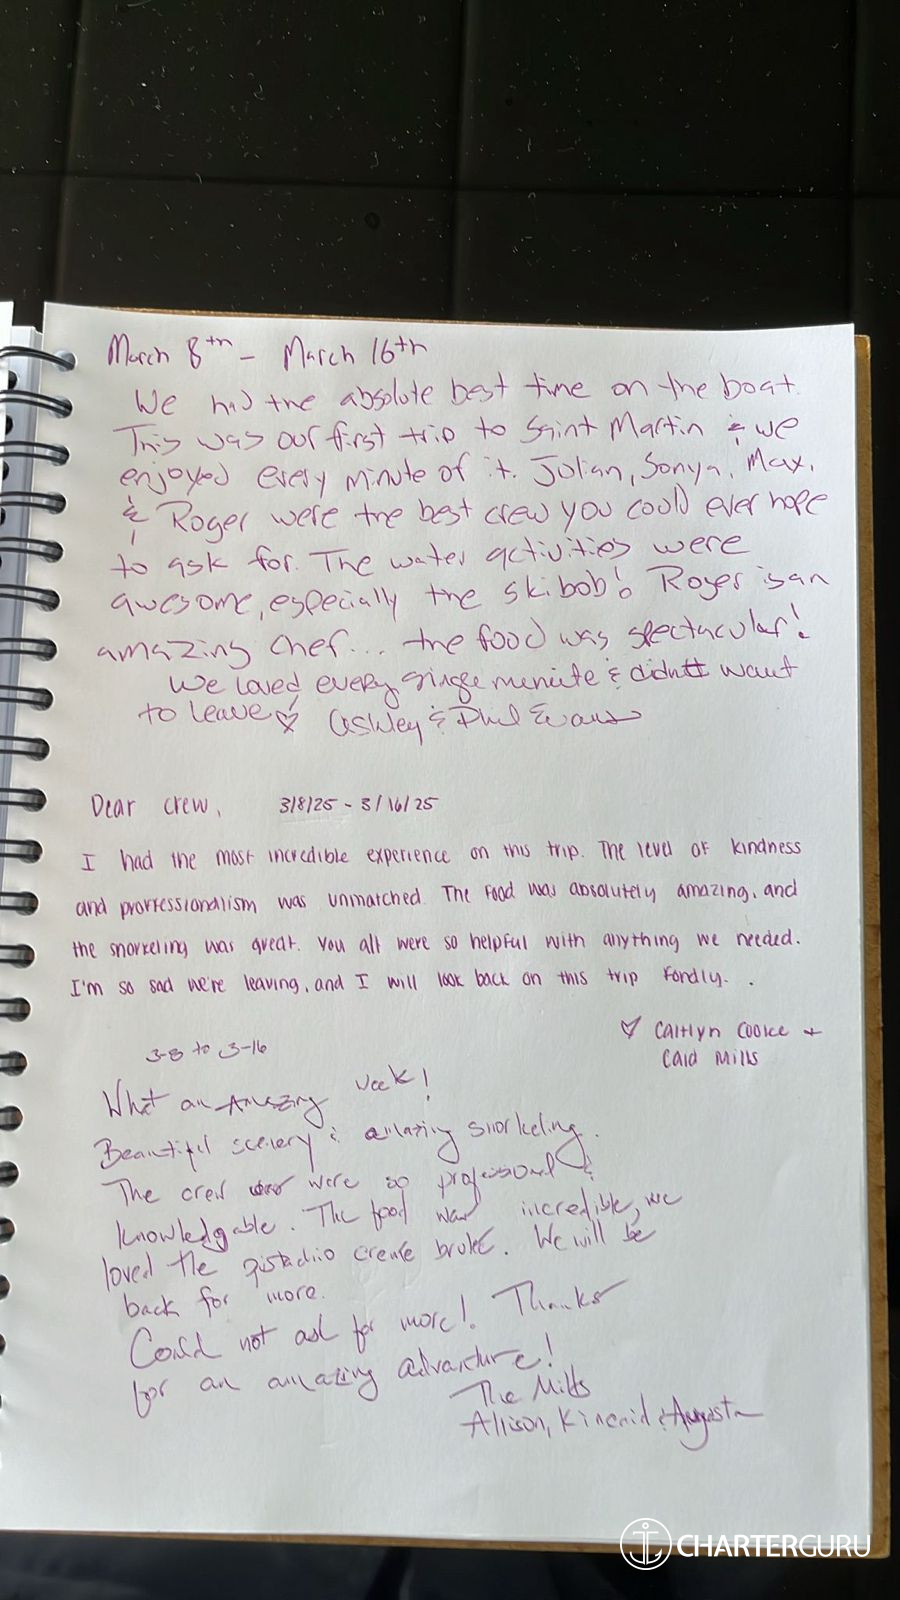 March 8th - March 16th
We had the absolute best time on the boat.
This was our first trip to Saint Martin & we
enjoyed every minute of it. Julian, Sonya, Max,
& Roger were the best crew you could ever hope
to ask for. The water activities were
awesome, especially the skibob! Roger is an
amazing chef... the food was spectacular!
We loved every single meniute & didn't want
to leave! ♡ Ashley & Phil Evans
Dear crew, 3/8/25 - 3/16/25
I had the most incredible experience on this trip. The level of kindness
and proffessionalism was unmatched. The food was absolutely amazing, and
the snorkeling was great. You all were so helpful with anything we needed.
I'm so sad we're leaving, and I will look back on this trip fondly. .
♡ Caitlyn Cooke +
Caid Mills
3-8 to 3-16
What an Amazing week!
Beautiful scenery & amazing snorkeling.
The crew were so professional &
knowledgable. The food was incredible, we
loved the pistachio creme brule. We will be
back for more.
Could not ask for more! Thanks
for an amazing advanture!
The Mills
Allison, Kincaid & August
CHARTERGURU